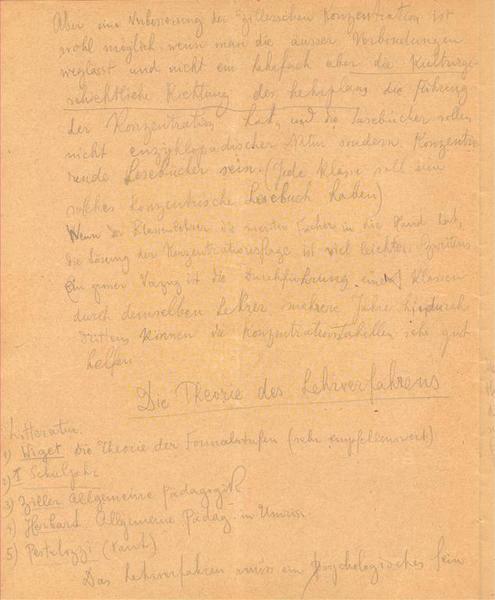 Aber eine Verbesserung der Zillerschen Konzentration ist
wohl möglich wenn man die äusser Verbindungen
weglässt und nicht ein Lehrfach aber die Kulturge-
schichtliche Richtung des Lehrplans die Führung
der Konzentration hat, und die Lesebücher sollen
nicht enzyklopädischer Natur sondern Konzentri-
rende Lesebücher sein. (Jede Klasse soll ein
solches Konzentrische Lesebuch haben)
Wenn der Klassenlehrer die meisten Fächer in die Hand hat,
die Lösung der Konzentrationsfrage ist viel leichter. zweitens
Ein Vorzug ist die Durchführung einer Klassen
durch demselben Lehrer mehrere Jahre hindurch
drittens können die Konzentrationstabellen sehr gut
helfen
Die Theorie des Lehrverfahrens
Litteratur.
1) Wiget die Theorie der Formalstufen (sehr empfellenswert)
2) I Schuljahr
3) Ziller Allgemeine Pädagogik
4) Herbart Allgemeine Pädag. in Umriss
5) Pestalozzi (Kant)
Das Lehrverfahren muss ein psychologisches sein